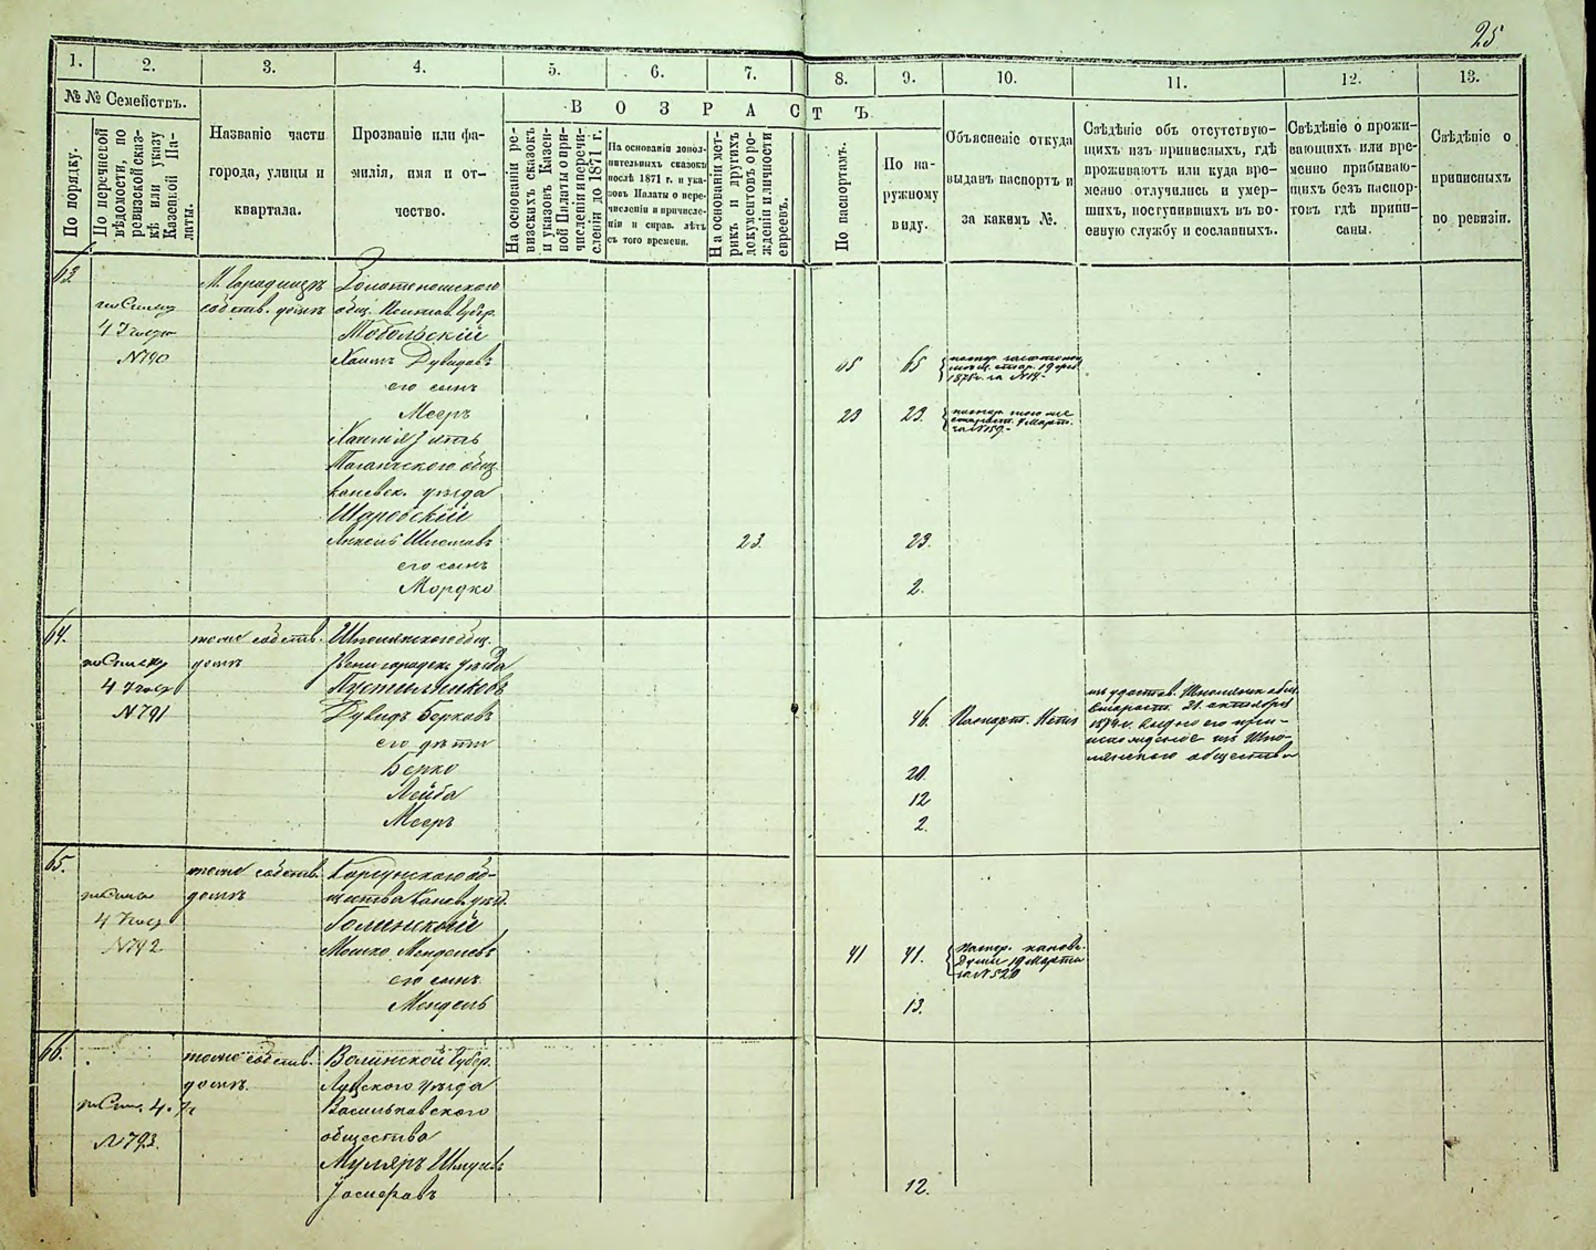 25
1. 2. 3. 4. 5. 6. 7. 8. 9. 10. 11. 12. 13.
№ № Семействъ.
По порядку.
По перечневой
вѣдомости, по
ревизской сказ-
кѣ или указу
Казенной Па-
латы.
Названіе части
города, улицы и
квартала.
Прозваніе или фа-
милія, имя и от-
чество.
В О З Р А С Т Ъ
На основаніи ре-
визскихъ сказокъ
и указовъ Казен-
ной Палаты о при-
численіи и перечи-
сленіи до 1871 г.
На основаніи допол-
нительныхъ сказокъ
послѣ 1871 г. и ука-
зовъ Палаты о пере-
численіи и причисле-
ніи и справ. лѣтъ
съ того времени.
На основаніи мет-
рикъ и другихъ
документовъ о ро-
жденіи и личности
евреевъ.
По паспортамъ.
По на-
ружному
виду.
Объясненіе откуда
выданъ паспортъ и
за какимъ №.
Свѣдѣніе объ отсутствую-
щихъ изъ приписныхъ, гдѣ
проживаютъ или куда вре-
менно отлучились и умер-
шихъ, поступившихъ въ во-
енную службу и сосланныхъ.
Свѣдѣніе о прожи-
вающихъ или вре-
менно прибываю-
щихъ безъ паспор-
товъ гдѣ припи-
саны.
Свѣдѣніе о
приписныхъ
по ревизіи.
63.
по Списку
4 Участ
№790
М. Городищъ
собств. домъ
Золотоношского
общ. Полтав. Губер.
Тобольскій
Хаимъ Дувидовъ
65 65
его сынъ
Мееръ
23 23.
паспор. того же
старост. 7 Март.
за №159.
Хаимъ Зять
Таганчского общ.
Каневск. уѣзда
Шаровскій
Анкель
23. 23.
его сынъ
Мордко
2.
64.
по Списку
4 Участ
№791
тоже собств.
домъ
Шполянского общ.
Звенигородск. уѣзда
Пустыльниковъ
Дувидъ Берковъ
46.
Паспорт. Нѣтъ
старост. 21. октября
общества
его дѣти
Берко
20.
Лейба
12
Мееръ
2.
65.
по Списк
4 Участ
№792
тоже собств.
домъ
Корсунского об-
щества Канев. уѣзд.
Голинскій
Мошко Менделевъ
41 41.
Паспор. Канев.
Думы 19 Марта
за №520
его сынъ
Мендель
13.
66.
по Спис. 4. Уч
№793.
тоже собств.
домъ.
Волинской Губер.
Луцкого уѣзда
Васильковского
общества
Муляръ Шмуль
12.